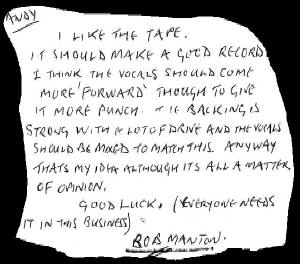 ANDY
I LIKE THE TAPE.
IT SHOULD MAKE A GOOD RECORD
I THINK THE VOCALS SHOULD COME
MORE 'FORWARD' THOUGH TO GIVE
IT MORE PUNCH. THE BACKING IS
STRONG WITH A LOT OF DRIVE AND THE VOCALS
SHOULD BE MIXED TO MATCH THIS. ANYWAY
THATS MY IDEA ALTHOUGH ITS ALL A MATTER
OF OPINION.
GOOD LUCK, (EVERYONE NEEDS
IT IN THIS BUSINESS)
BOB MANTON.